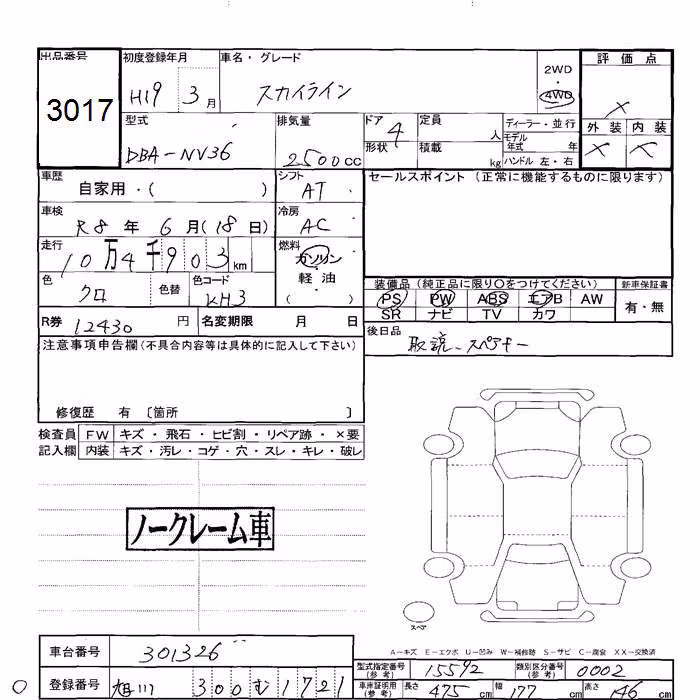 出品番号
3017
初度登録年月
H19 3月
車名・グレード
スカイライン
2WD
・
4WD
評価点
×
外装 内装
× ×
型式
DBA-NV36
排気量
2500cc
ドア 4
形状
定員 人
積載 kg
ディーラー・並行
モデル
年式 年
ハンドル 左・右
車歴
自家用・( )
シフト
AT
車検
R8年6月(18日)
冷房
AC
走行
10万4千903km
燃料
ガソリン
・
軽油
( )
色
クロ
色替
色コード
KH3
R券 12430円
名変期限 月 日
セールスポイント(正常に機能するものに限ります)
装備品(純正品に限り〇をつけてください)
新車保証書
PS PW ABS エアB AW
SR ナビ TV カワ
有・無
後日品
取説-スペアキー
注意事項申告欄(不具合内容等は具体的に記入して下さい)
修復歴 有 〔箇所 〕
検査員
記入欄
FW キズ・飛石・ヒビ割・リペア跡・×要
内装 キズ・汚レ・コゲ・穴・スレ・キレ・破レ
ノークレーム車
スペア
A-キズ E-エクボ U-凹み W-補修跡 S-サビ C-腐食 XX-交換済
車台番号 301326
登録番号 旭川 300 む 1721
型式指定番号
(参考)
15592
類別区分番号
(参考)
0002
車庫証明用
(参考)
長さ 475cm
幅 177cm
高さ 146cm